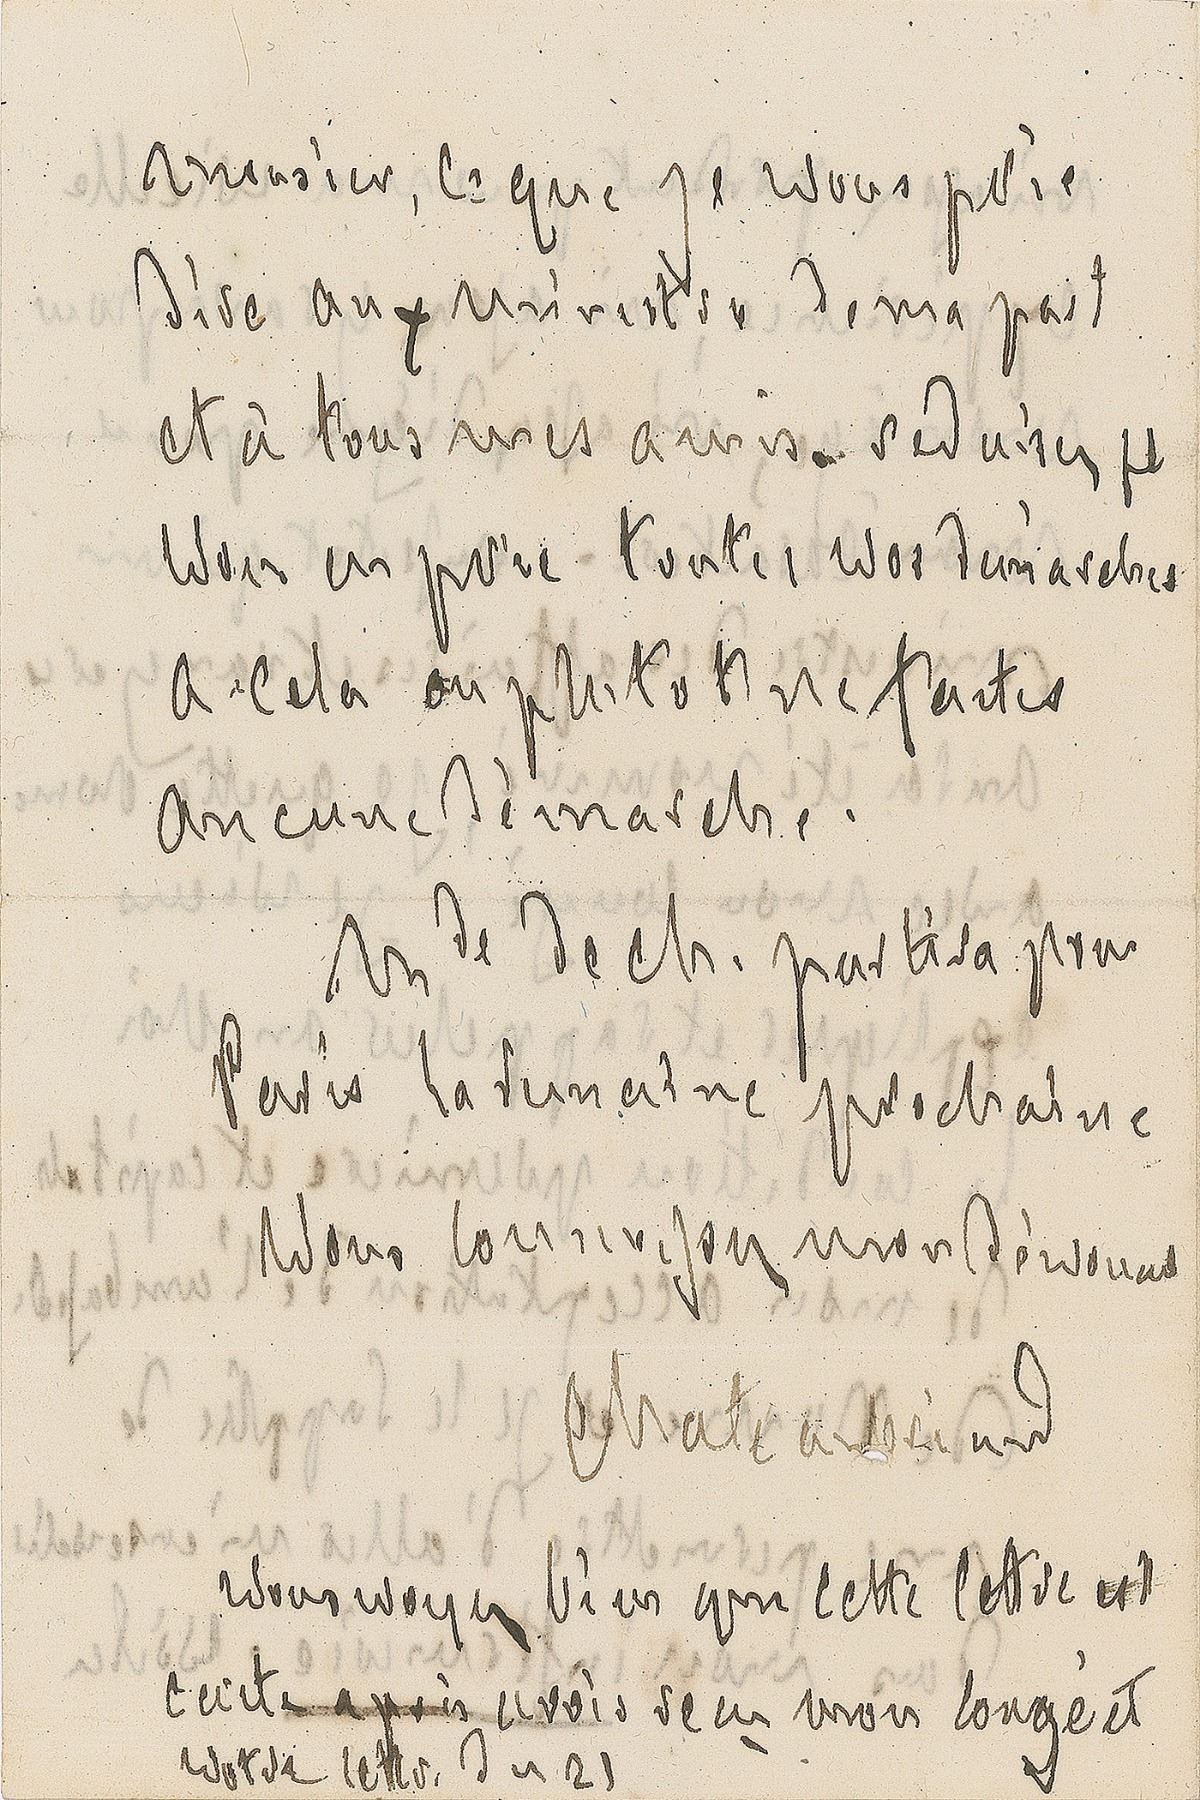 monsieur, ce que je vous prie
dire aux ministre de ma part
et à tous mes amis. reduisez je
vous en prie toutes vos demarches
a cela ou plutot ne faites
aucune démarche.
Mde de Ch. partira pour
Paris la semaine prochaine
Vous connoissez mon dévoument
Chateaubriand
vous voyez bien que cette lettre est
écrite après avoir reçu mon congé et
votre lettre du 21